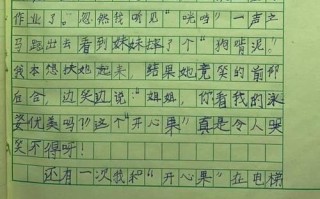 作业了。忽然我听见“咣当”一声立
马跑出去看到妹妹摔了个“狗啃泥”。
我本想扶她起来,结果她竟笑的前仰
后合,边笑边说:“姐姐,你看我的泳
姿优美吗?”这个“开心果”真是令人哭
笑不得呀!
还有一次我和“开心果”在电梯